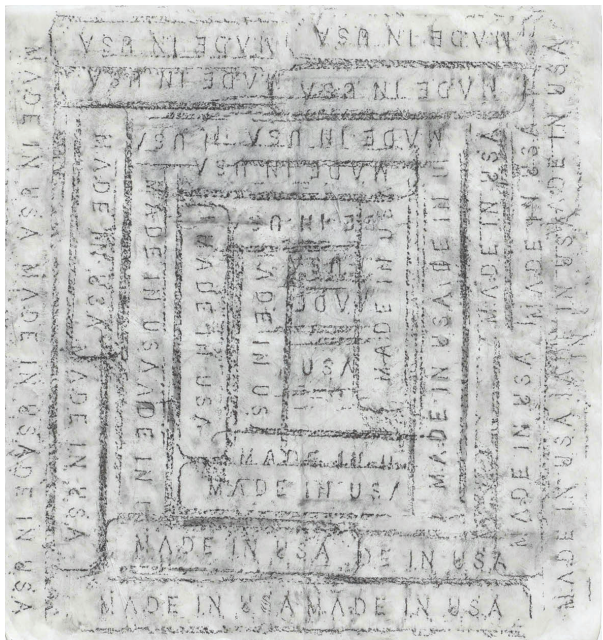 MADE IN USA MADE IN USA
MADE IN USA MADE IN USA
MADE IN USA
MADE IN
IN US
ADE
USA
MADE IN USA
MADE IN USA DE IN USA
MADE IN USA MADE IN USA
MADE IN USA MADE IN USA ADE IN USA
MADE IN USA
MADE IN USA
MADE IN USA ADE IN
MADE IN USA
ADE IN US
MADE IN US
MADE IN USA ADE IN
MADE IN USA
MADE IN USA
ADE IN USA
MADE IN USA